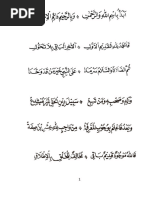 أَبْدَأُ بِاسْمِ اللهِ وَالرَّحْمٰنِ * وَبِالرَّحِيمِ دَائِمِ الْإِحْسَانِ
فَالْحَمْدُ لِلّٰهِ الْقَدِيمِ الْأَوَّلِ * الْآخِرِ الْبَاقِي بِلَا تَحَوُّلِ
ثُمَّ الصَّلَاةُ وَالسَّلَامُ سَرْمَدَا * عَلَى النَّبِيِّ خَيْرِ مَنْ قَدْ وَحَّدَا
وَآلِهِ وَصَحْبِهِ وَمَنْ تَبِعْ * سَبِيلَ دِينِ الْحَقِّ غَيْرَ مُبْتَدِعْ
وَبَعْدُ فَاعْلَمْ بِوُجُوبِ الْمَعْرِفَةْ * مِنْ وَاجِبٍ لِلّٰهِ عِشْرِينَ صِفَةْ
فَاللهُ مَوْجُودٌ قَدِيمٌ بَاقِي * مُخَالِفٌ لِلْخَلْقِ بِالْإِطْلَاقِ